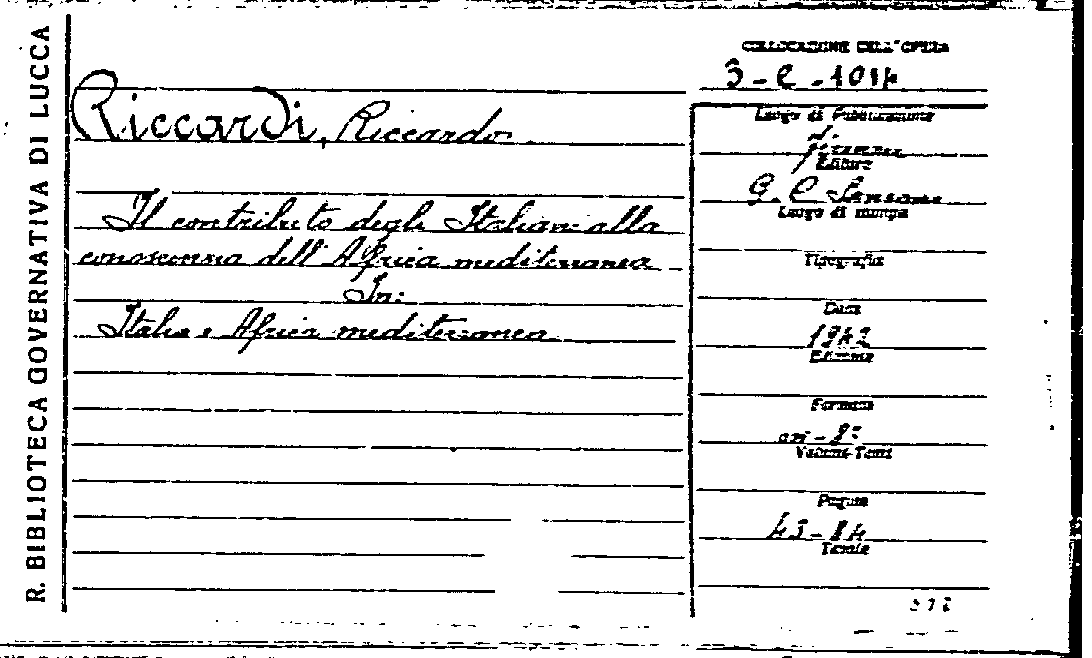 R. BIBLIOTECA GOVERNATIVA DI LUCCA
COLLOCAZIONE DELL'OPERA
3-e-1014
Riccardi, Riccardo
Il contributo degli Italiani alla
conoscenza dell'Africa mediterranea
In:
Italia e Africa mediterranea
Luogo di Pubblicazione
Firenze
Editore
G. C. Sansoni
Luogo di stampa
Tipografia
Data
1942
Edizione
Formato
in-8°
Volumi-Tomi
Pagine
43-84
Tavole